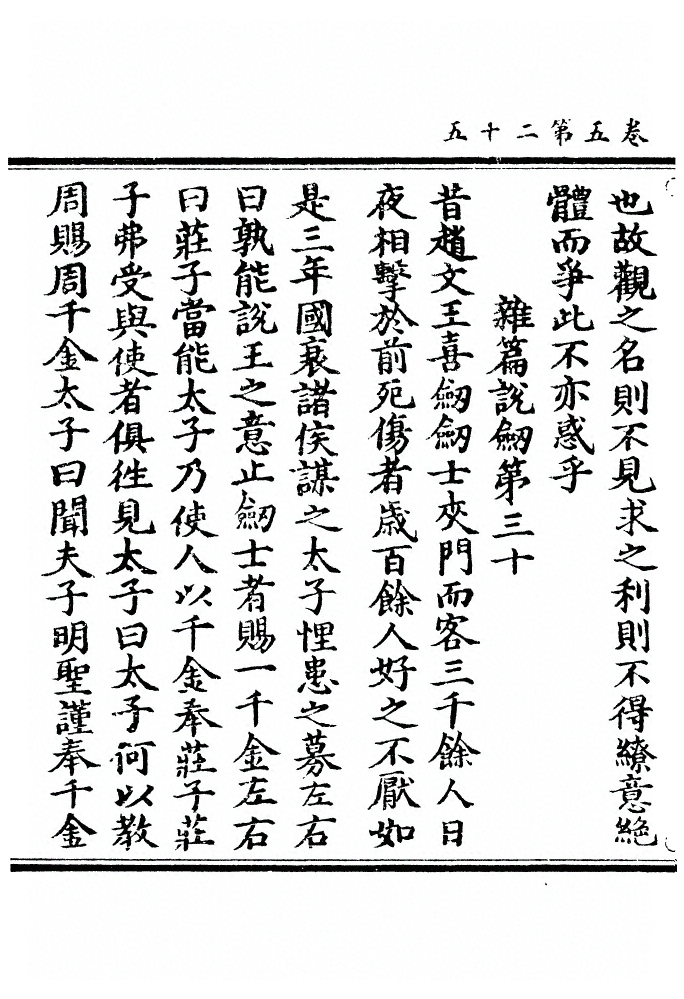 卷五第二十五
也故觀之名則不見求之利則不得繚意絕
體而爭此不亦惑乎
雜篇說劒第三十
昔趙文王喜劒劒士夾門而客三千餘人日
夜相擊於前死傷者歲百餘人好之不厭如
是三年國衰諸侯謀之太子悝患之募左右
曰孰能說王之意止劒士者賜一千金左右
曰莊子當能太子乃使人以千金奉莊子莊
子弗受與使者俱往見太子曰太子何以教
周賜周千金太子曰聞夫子明聖謹奉千金